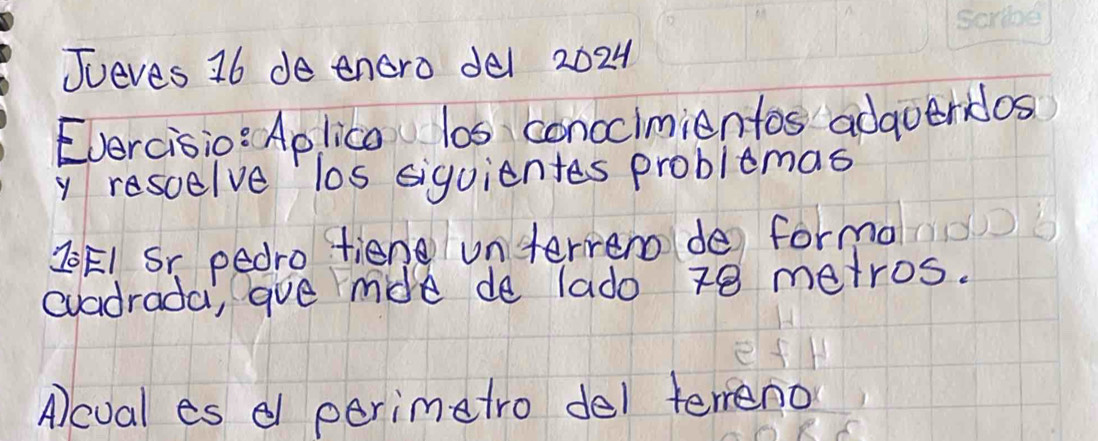 Scribe
Jueves 16 de enero del 2024
Evercisio: Aplica los conocimientos adqueridos
y resuelve los siguientes problemas
1: El Sr pedro tiene un terreno de forma
cuadrada, que mide de lado 78 metros.
A) cual es el perimetro del terreno